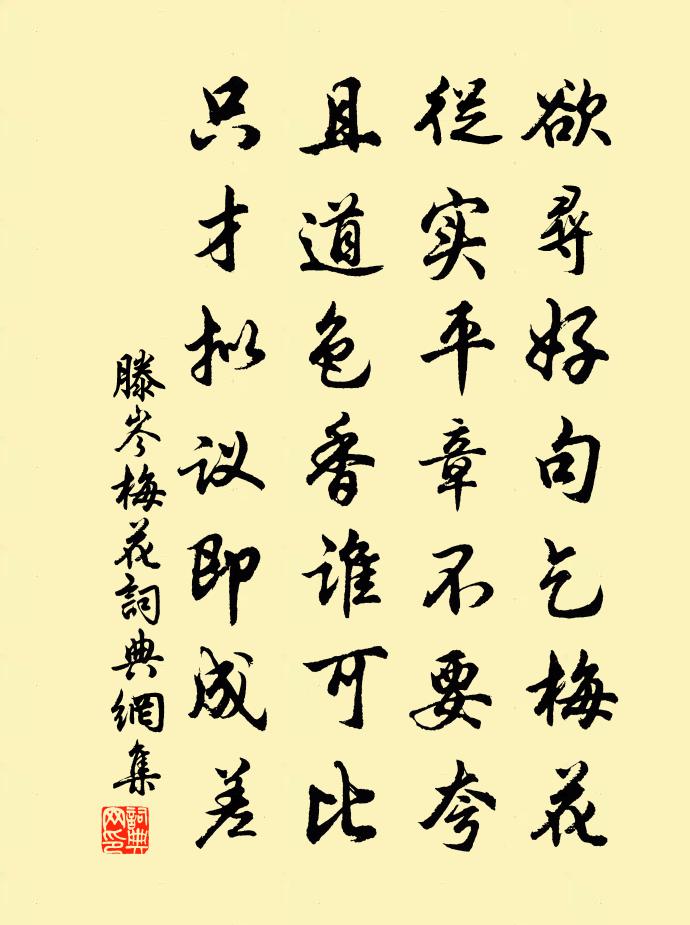 欲尋好句乞梅花
從实平章不要夸
且道色香谁可比
只才拟议即成差
滕岑梅花詞典網集
詞典网印